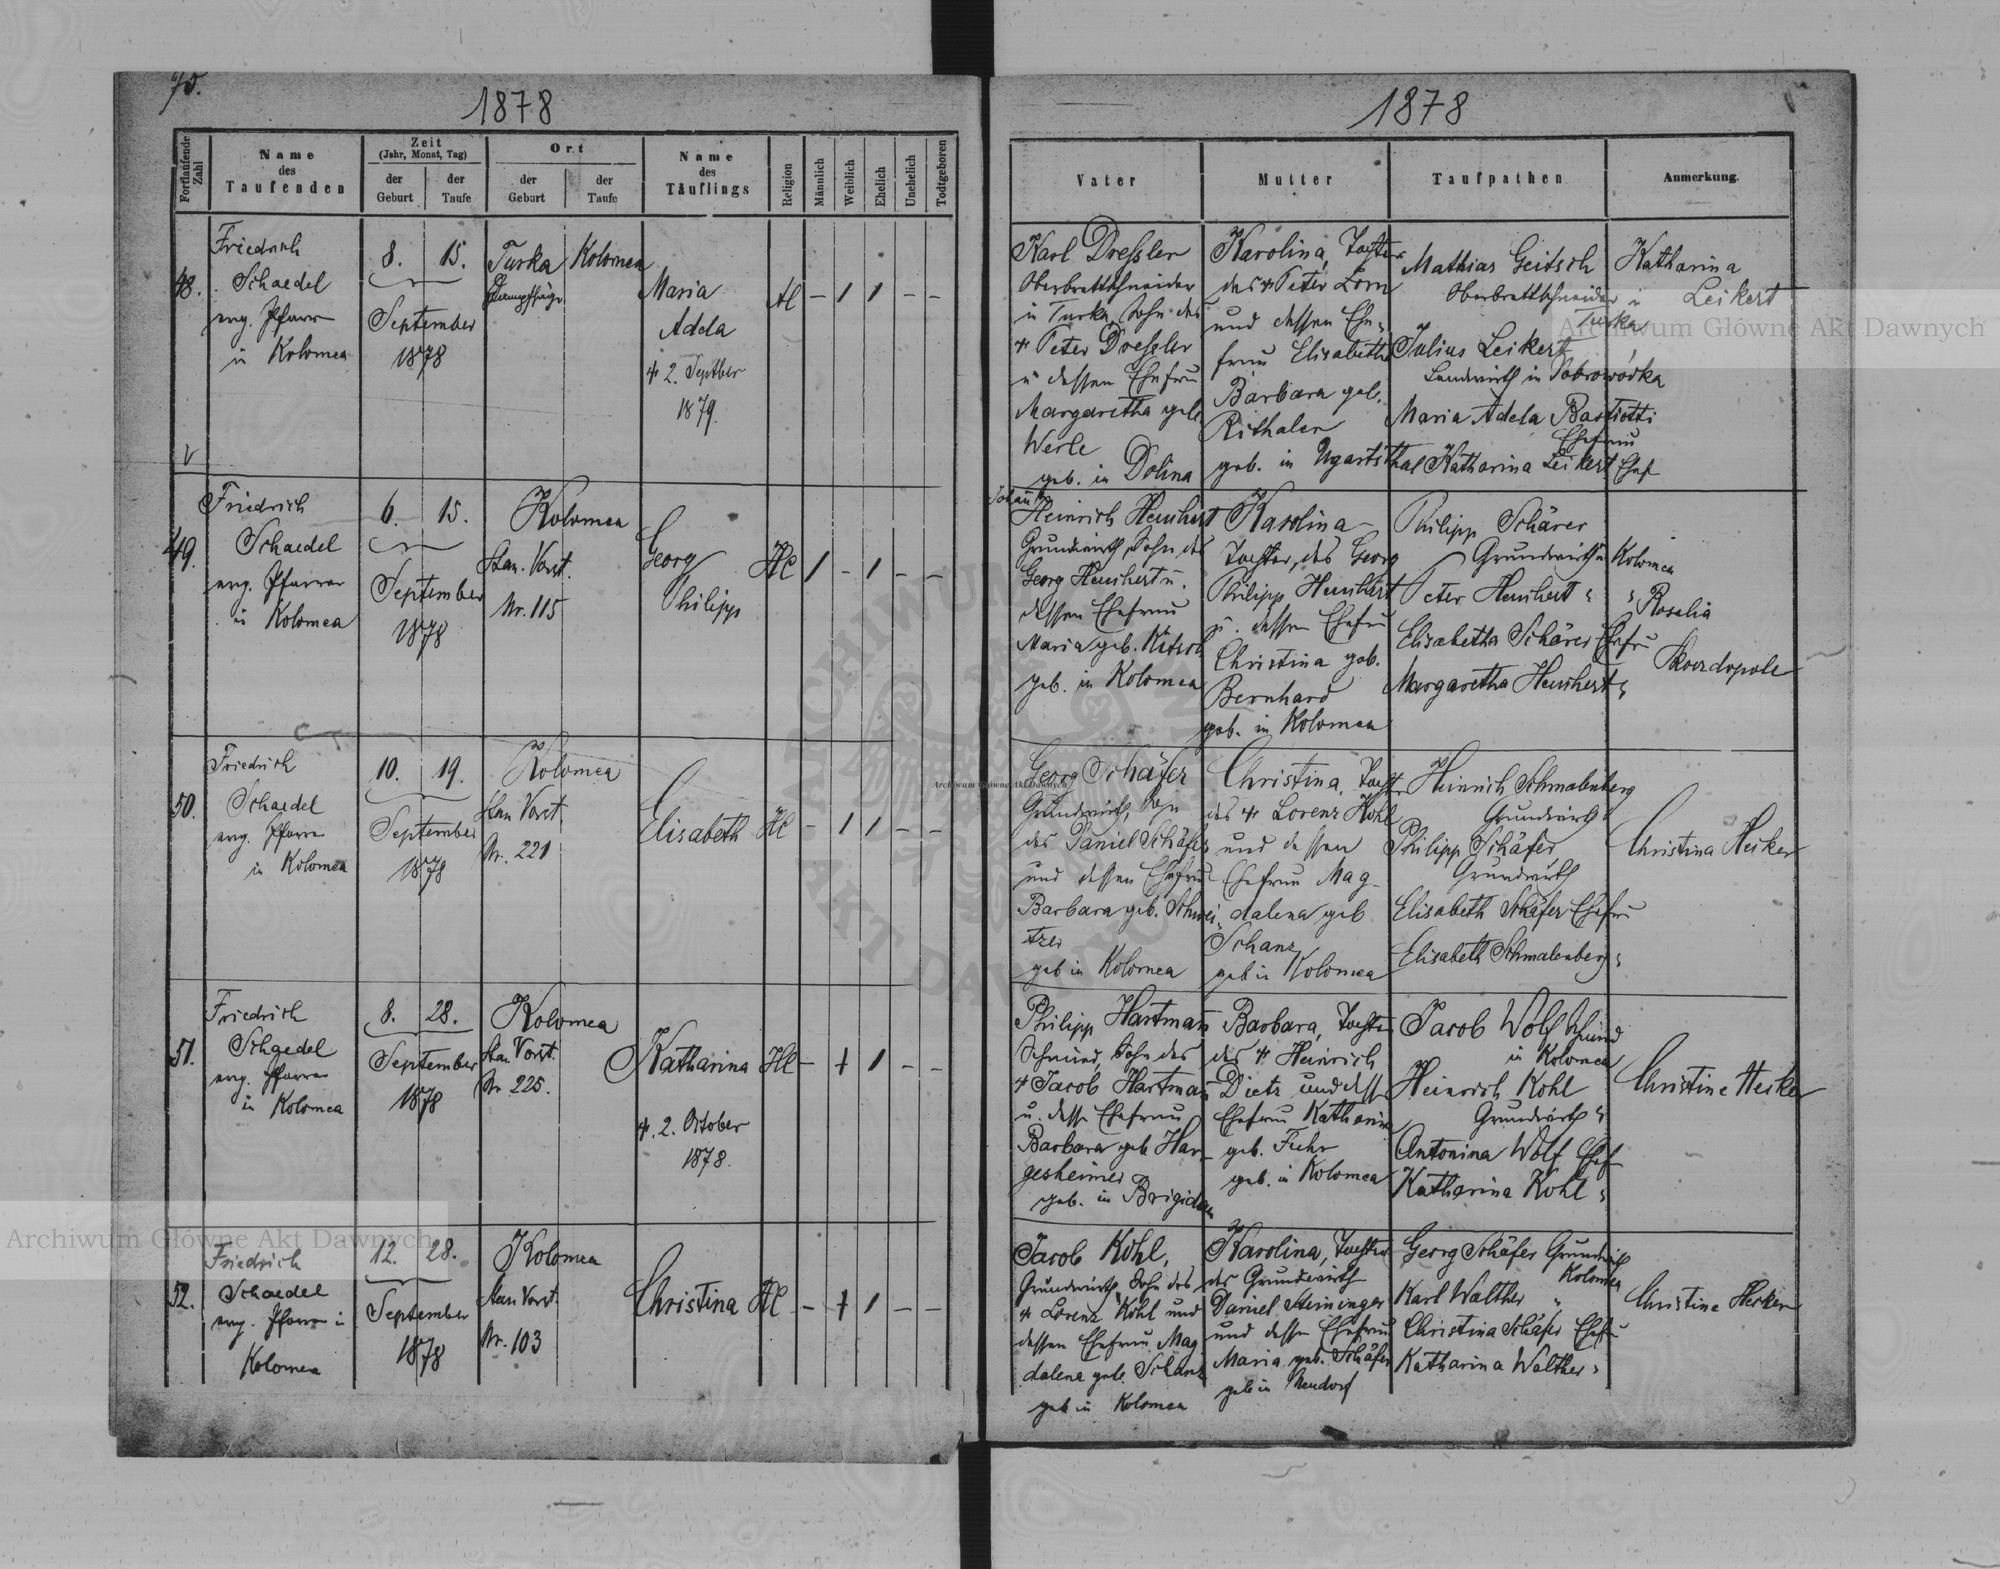 75.
1878
1878
Fortlaufende Zahl
Name des Taufenden
Zeit (Jahr, Monat, Tag)
der Geburt
der Taufe
Ort
der Geburt
der Taufe
Name des Täuflings
Religion
Männlich
Weiblich
Ehelich
Unehelich
Todtgeboren
Vater
Mutter
Taufpathen
Anmerkung.
48.
Friedrich
Schaedel
evg. Pfarrer
in Kolomea
8. 15.
September
1878
Turka
Kolomea
Maria
Adela
2. Septber
1879.
– 1 1 – –
Karl Dressler
Oberbrettschneider
in Turka, Sohn des
Peter Dressler
u dessen Ehefrau
Margaretha geb.
Werle
geb. in Dolina
Karolina, Tochter
des Peter Lorn
und dessen Ehe-
frau Elisabetha
Barbara geb.
Rithaler
geb. in Ugartsthal
Mathias Geitsch
Oberbrettschneider in
Turka
Julius Leikert
Landwirth in Dobrowódka
Maria Adela Bastiotti
Ehefrau
Katharina Leikert Ehef
Katharina
Leikert
49.
Friedrich
Schaedel
evg. Pfarrer
in Kolomea
6. 15.
September
1878
Kolomea
Stan. Vorst.
Nr. 115
Georg
Philipp
HC
1 – 1 – –
Johann
Heinrich Heuchert
Grundwirth, Sohn des
Georg Heuchert u.
dessen Ehefrau
Maria geb.
geb. in Kolomea
Karolina
Tochter des Georg
Philipp Heuchert
u. dessen Ehefr
Christina geb.
Bernhard
geb. in Kolomea
Philipp Schärer
Grundwirth in Kolomea
Peter Heuchert " "
Elisabetha Schärer Ehefr
Margaretha Heuchert "
Rosalia
Skordopole
50.
Friedrich
Schaedel
evg. Pfarrer
in Kolomea
10. 19.
September
1878
Kolomea
Stan Vorst.
Nr. 221
Elisabeth
HC
– 1 1 – –
Georg Schäfer
Grundwirth, Sohn
des Daniel Schäfer
und dessen Ehefrau
Barbara geb. Schwei-
tzer
geb in Kolomea
Christina, Tocht
des Lorenz Kohl
und dessen
Ehefrau Mag-
dalena geb
Schanz
geb in Kolomea
Heinrich Schmalenberg
Grundwirth
Philipp Schäfer
Grundwirth
Elisabeth Schäfer Ehefr
Elisabeth Schmalenberg "
Christina Herker
51.
Friedrich
Schaedel
evg. Pfarrer
in Kolomea
8. 28.
September
1878
Kolomea
Stan Vorst.
Nr 225.
Katharina
2. October
1878.
HC
– + 1 – –
Philipp Hartman
Schmied, Sohn des
Jacob Hartman
u. dess Ehefrau
Barbara geb Har-
gesheimer
geb. in Brigidau
Barbara, Tochter
des Heinrich
Dietz und dess
Ehefrau Katharina
geb. Fuhr
geb. in Kolomea
Jacob Wolf Schmied
in Kolomea
Heinrich Kohl
Grundwirth "
Antonina Wolf Ehef
Katharina Kohl "
Christine Herker
52.
Friedrich
Schaedel
evg. Pfarrer in
Kolomea
12. 28.
September
1878
Kolomea
Stan Vorst.
Nr. 103
Christina
HC
– + 1 – –
Jacob Kohl,
Grundwirth, Sohn des
Lorenz Kohl und
dessen Ehefrau Mag
dalena geb. Schanz
geb in Kolomea
Karolina, Tochter
des Grundwirth
Daniel Steininger
und dessen Ehefrau
Maria geb. Schäfer
geb in Neudorf
Georg Schäfer Grundwirth
Kolomea
Karl Walther "
Christina Schäfer Ehefr
Katharina Walther "
Christine Herker
Archiwum Główne Akt Dawnych
Archiwum Główne Akt Dawnych
Archiwum Główne Akt Dawnych
ARCHIWUM
AKT DAWNYCH